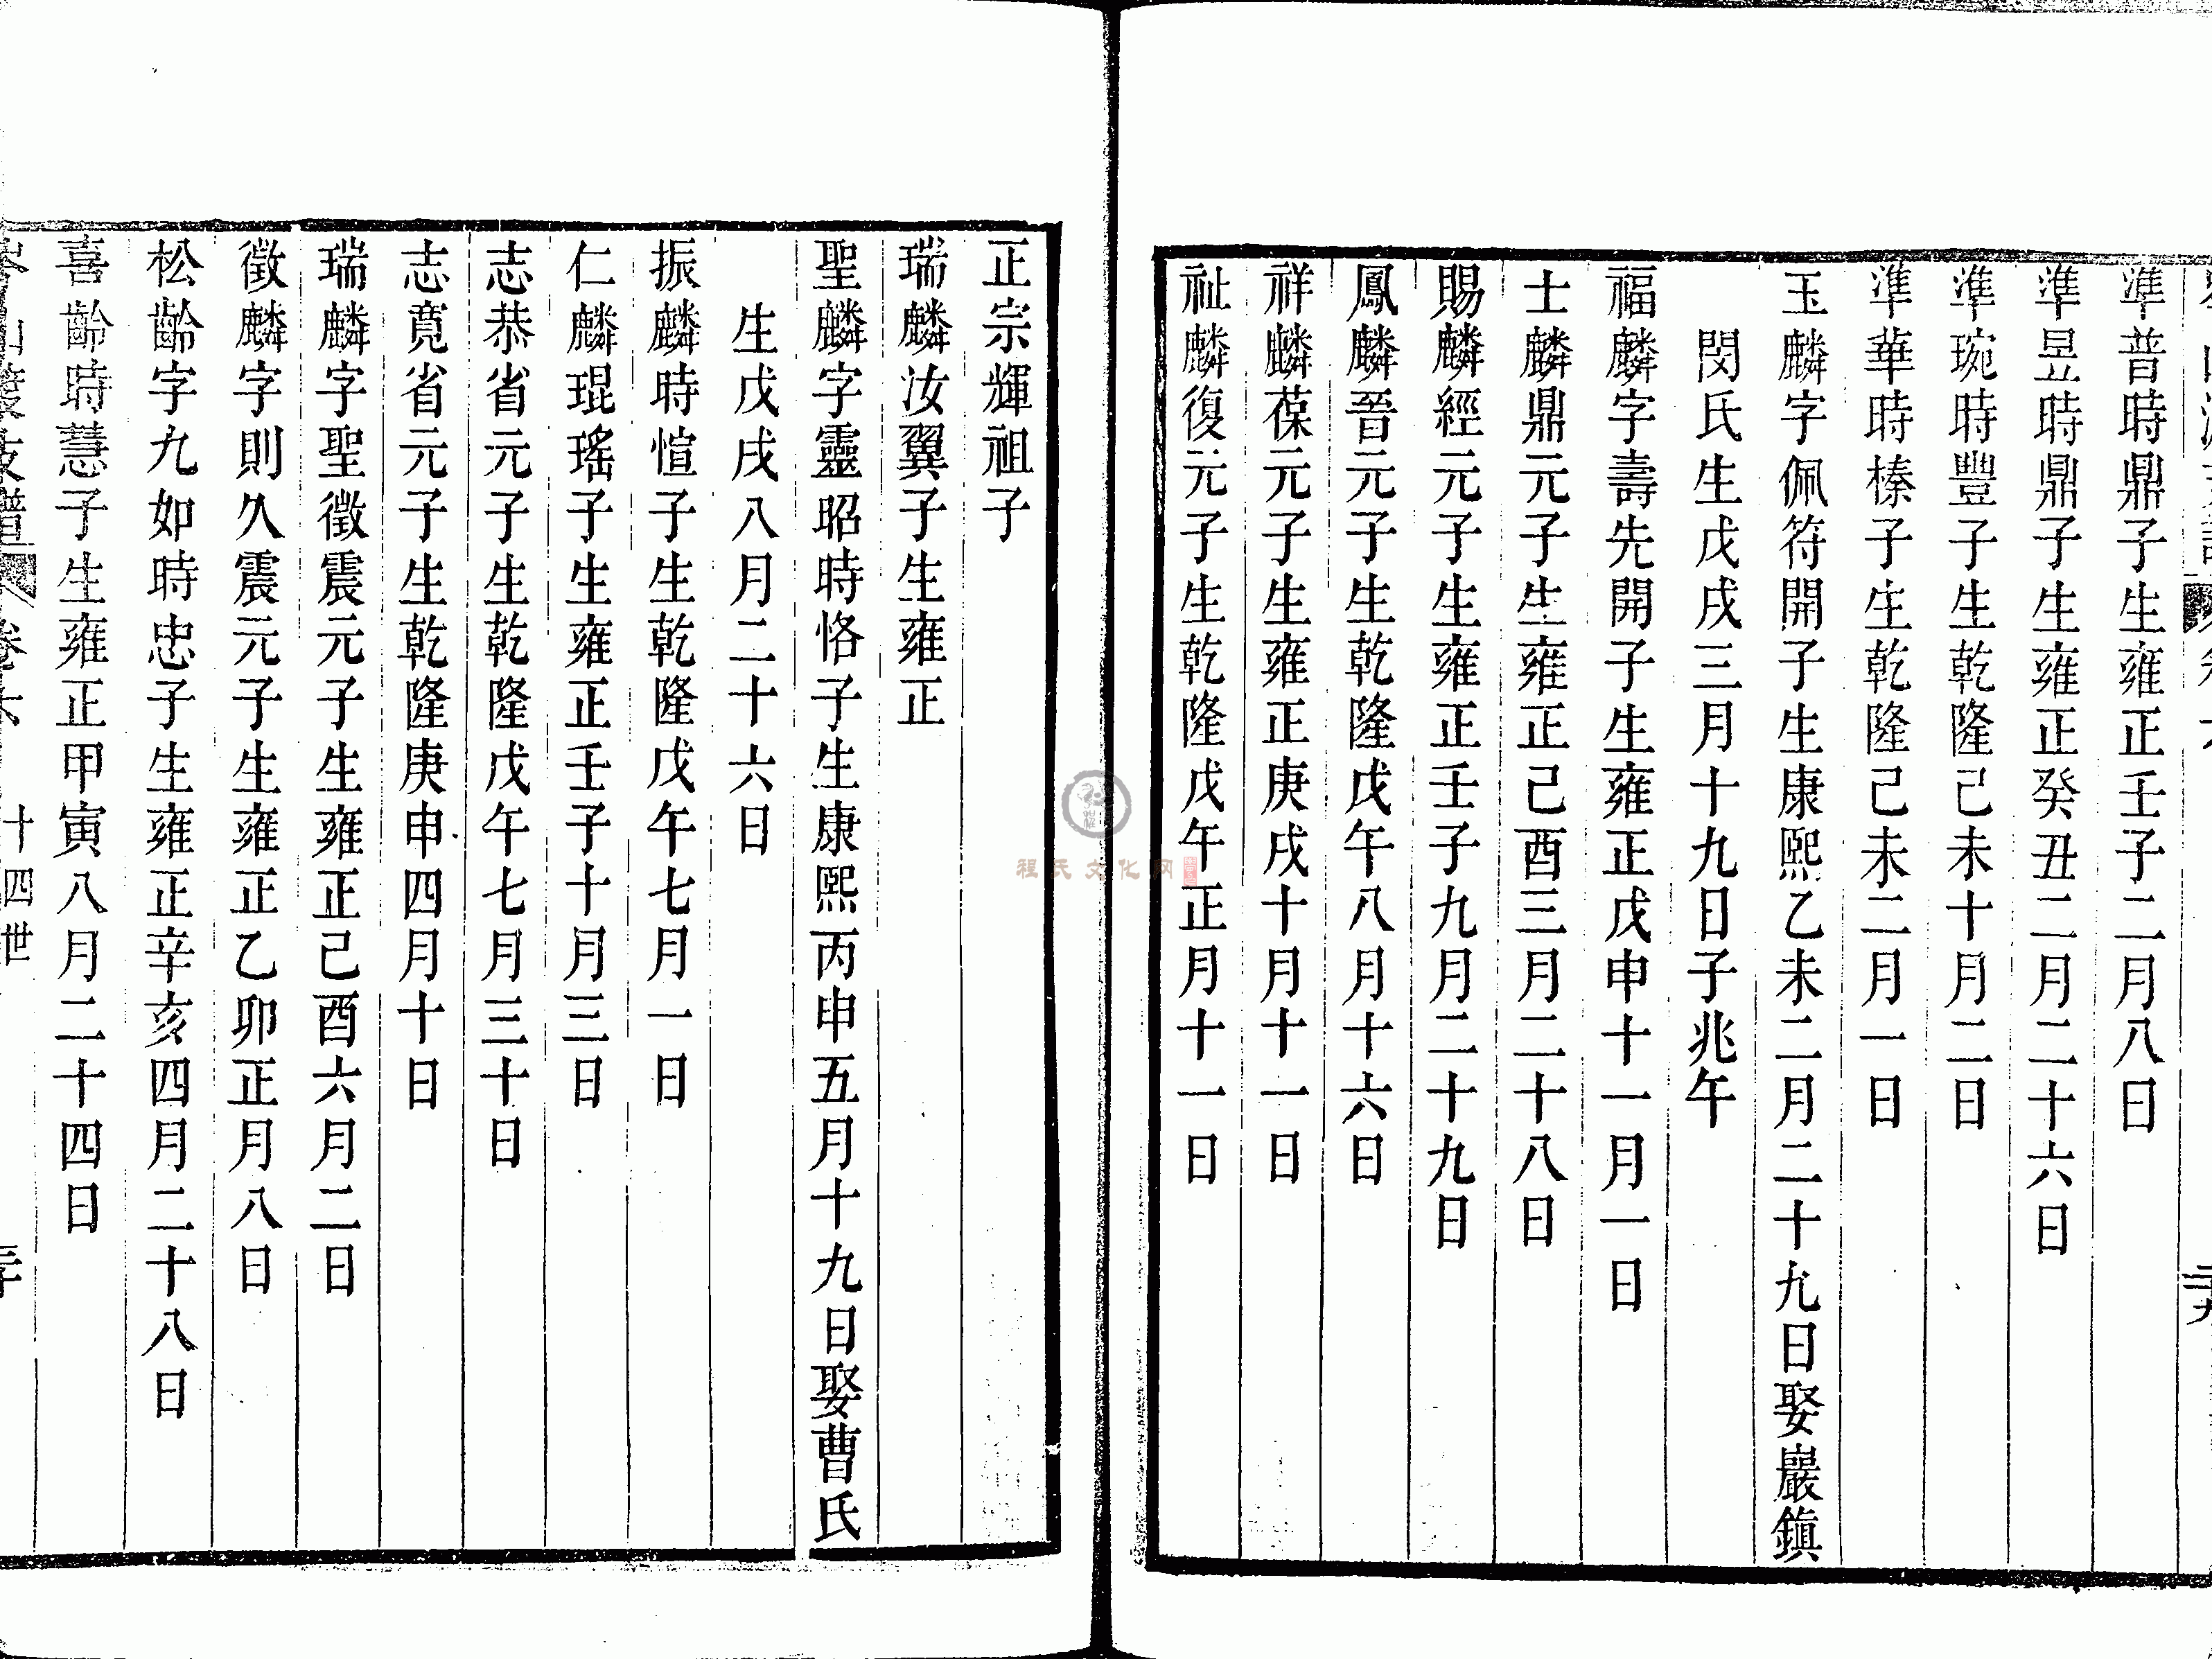 準普時鼎子生雍正壬子二月八日
準昱時鼎子生雍正癸丑二月二十六日
準琬時豐子生乾隆己未十月二日
準華時榛子生乾隆己未二月一日
玉麟字佩符開子生康熙乙未二月二十九日娶巖鎮
閔氏生戊戌三月十九日子兆午
福麟字壽先開子生雍正戊申十一月一日
士麟鼎元子生雍正己酉三月二十八日
賜麟經元子生雍正壬子九月二十九日
鳳麟晉元子生乾隆戊午八月十六日
祥麟葆元子生雍正庚戌十月十一日
祉麟復元子生乾隆戊午正月十一日
正宗輝祖子
瑞麟汝翼子生雍正
聖麟字靈昭時恪子生康熙丙申五月十九日娶曹氏
生戊戌八月二十六日
振麟時愷子生乾隆戊午七月一日
仁麟琨瑤子生雍正壬子十月三日
志恭省元子生乾隆戊午七月三十日
志寛省元子生乾隆庚申四月十日
瑞麟字聖徵震元子生雍正己酉六月二日
徵麟字則久震元子生雍正乙卯正月八日
松齡字九如時忠子生雍正辛亥四月二十八日
喜齡時慧子生雍正甲寅八月二十四日
卷六 十四世 三十
程氏文化网